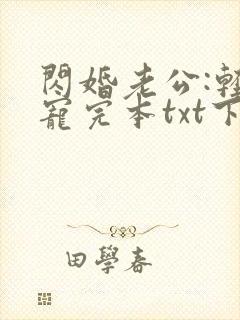 閃婚老公:輕
寵完本txt下
田學春